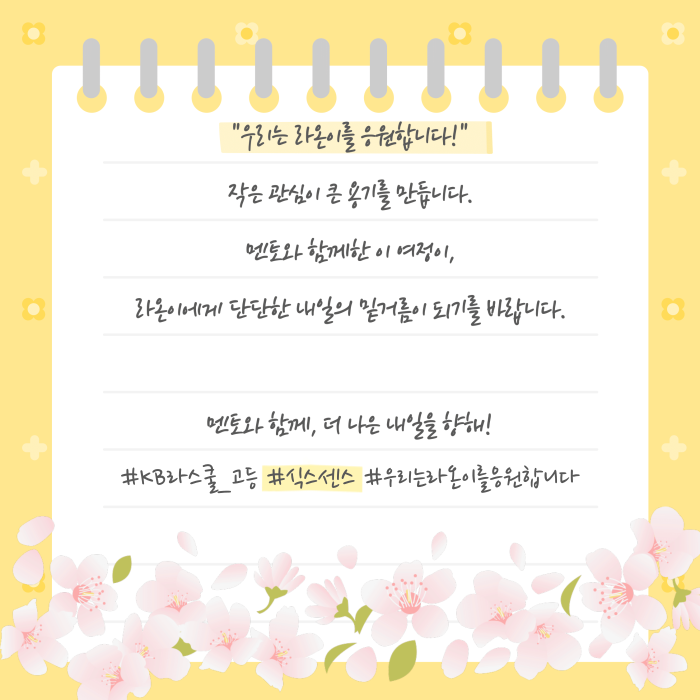 "우리는 라온이를 응원합니다!"
작은 관심이 큰 용기를 만듭니다.
멘토와 함께한 이 여정이,
라온이에게 단단한 내일의 밑거름이 되기를 바랍니다.
멘토와 함께, 더 나은 내일을 향해!
#KB라스쿨_고등 #식스센스 #우리는라온이를응원합니다